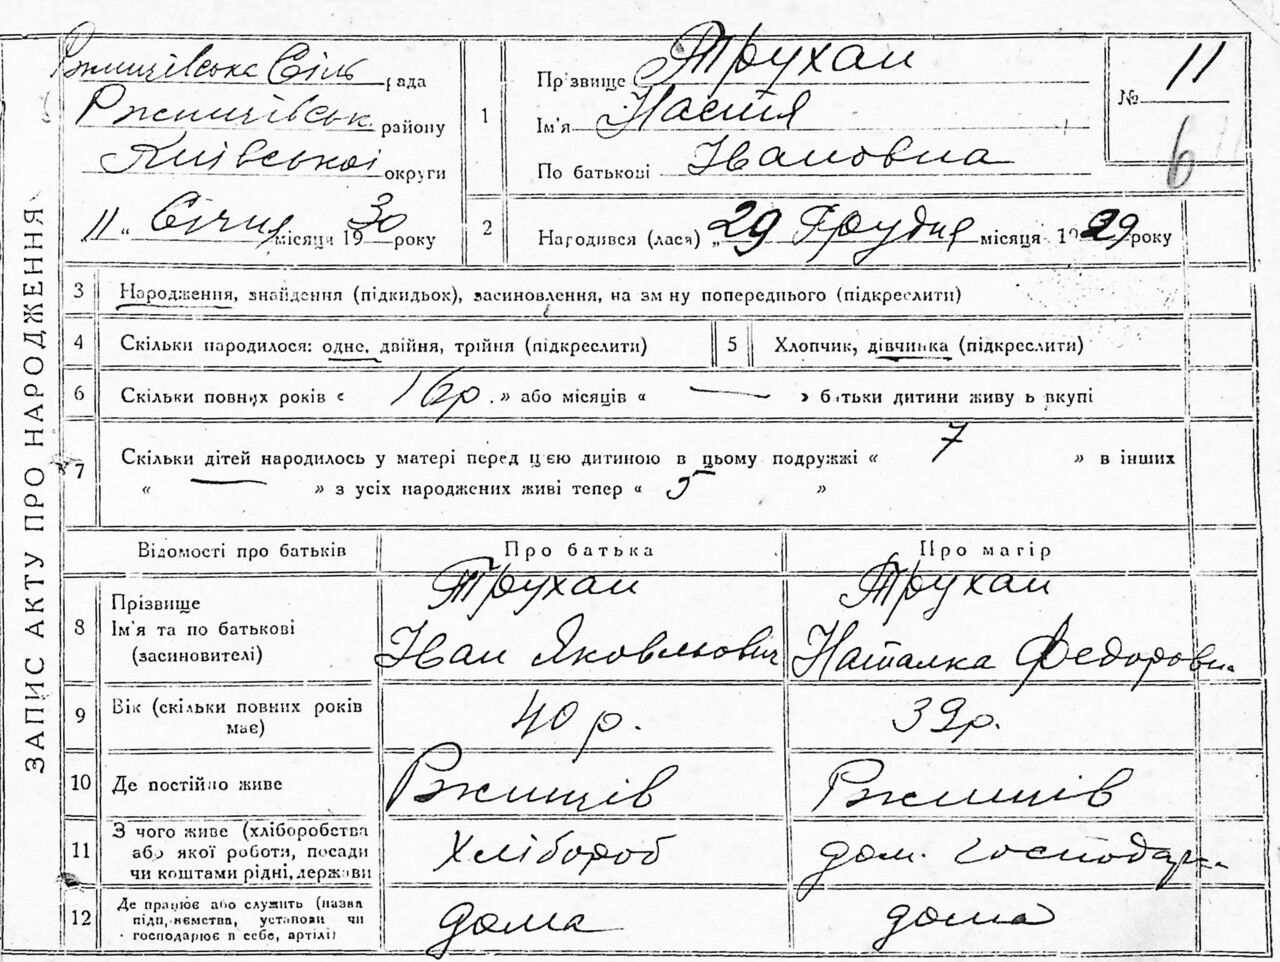 ЗАПИС АКТУ ПРО НАРОДЖЕННЯ
Ржищівська Сіль рада
Ржищівськ району
Київської округи
11 " Січня місяця 1930 року
1 Прізвище Трухан
Ім'я Настя
По батькові Івановна
№ 11
6
2 Народився (лася) „29 Грудня місяця 1929 року
3 Народження, знайдення (підкидьок), засиновлення, на зм ну попереднього (підкреслити)
4 Скільки народилося: одне, двійня, трійня (підкреслити) 5 Хлопчик, дівчинка (підкреслити)
6 Скільки повних років « 16 р. » або місяців « — » батьки дитини живу ь вкупі
7 Скільки дітей народилось у матері перед цією дитиною в цьому подружжі « 7 » в інших
« » з усіх народжених живі тепер « 5 »
Відомості про батьків Про батька Про матір
8 Прізвище Ім'я та по батькові (засиновителі) Трухан Іван Яковльович Трухан Наталка Федоровн.
9 Вік (скільки повних років має) 40 р. 39 р.
10 Де постійно живе Ржищів Ржищів
11 З чого живе (хліборобства або якої роботи, посади чи коштами рідні, держави Хлібороб дом. господар.
12 Де працює або служить (назва підприємства, установи чи господарює в себе, артілі) дома дома